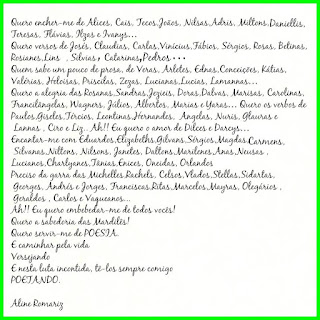 Quero encher-me de Alices, Cais, Tecos,Joãos, Nilsas,Adris, Miltons,Danielles,
Teresas, Flávias, Ilzas e Ivanys...
Quero versos de Josés, Claudias, Carlas,Vinicius,Fábios, Sérgios, Rosas, Betinas,
Rosianes,Lins , Silvias e Catarinas,Pedros • • •
Quem sabe um pouco de prosa, de Veras, Arletes, Ednas,Conceições, Kátias,
Valérias, Heloisas, Priscilas, Zezas, Lucianas,Lucias, Lannanas...
Quero a alegria das Rosanas,Sandras,Jezieis, Doras,Dalvas, Marisas, Carolinas,
Francilângelas, Wagners, Júlios, Albertos, Marias e Yaras... Quero os verbos de
Paulos,Giseles,Tércios, Leontinas,Hernandes, Angelas, Nuris, Glauras e
Lannas , Ciro e Liz.. Ah!! Eu quero o amor de Dilces e Darcys...
Encantar-me com Eduardos,Elizabeths,Gilvans,Sérgios,Magdas,Carmens,
Silvanas,Niltons, Nilsons, Jandes, Daltons,Marilenes,Anas,Neusas ,
Lucianos,Charlyanes,Tânias,Enices, Oneidas, Orlandos
Preciso da garra das Michelles,Rachels, Celsos,Vlados,Stellas,Sidartas,
Georges, Andrés e Jorges, Franciscas,Ritas,Marcelos,Mayras, Olegários ,
Geraldos , Carlos e Vaqueanos...
Ah!! Eu quero embebedar-me de todos vocês!
Quero a sabedoria das Mardilês!
Quero servir-me de POESIA.
E caminhar pela vida
Versejando
E nesta luta incontida, tê-los sempre comigo
POETANDO.
Aline Romariz